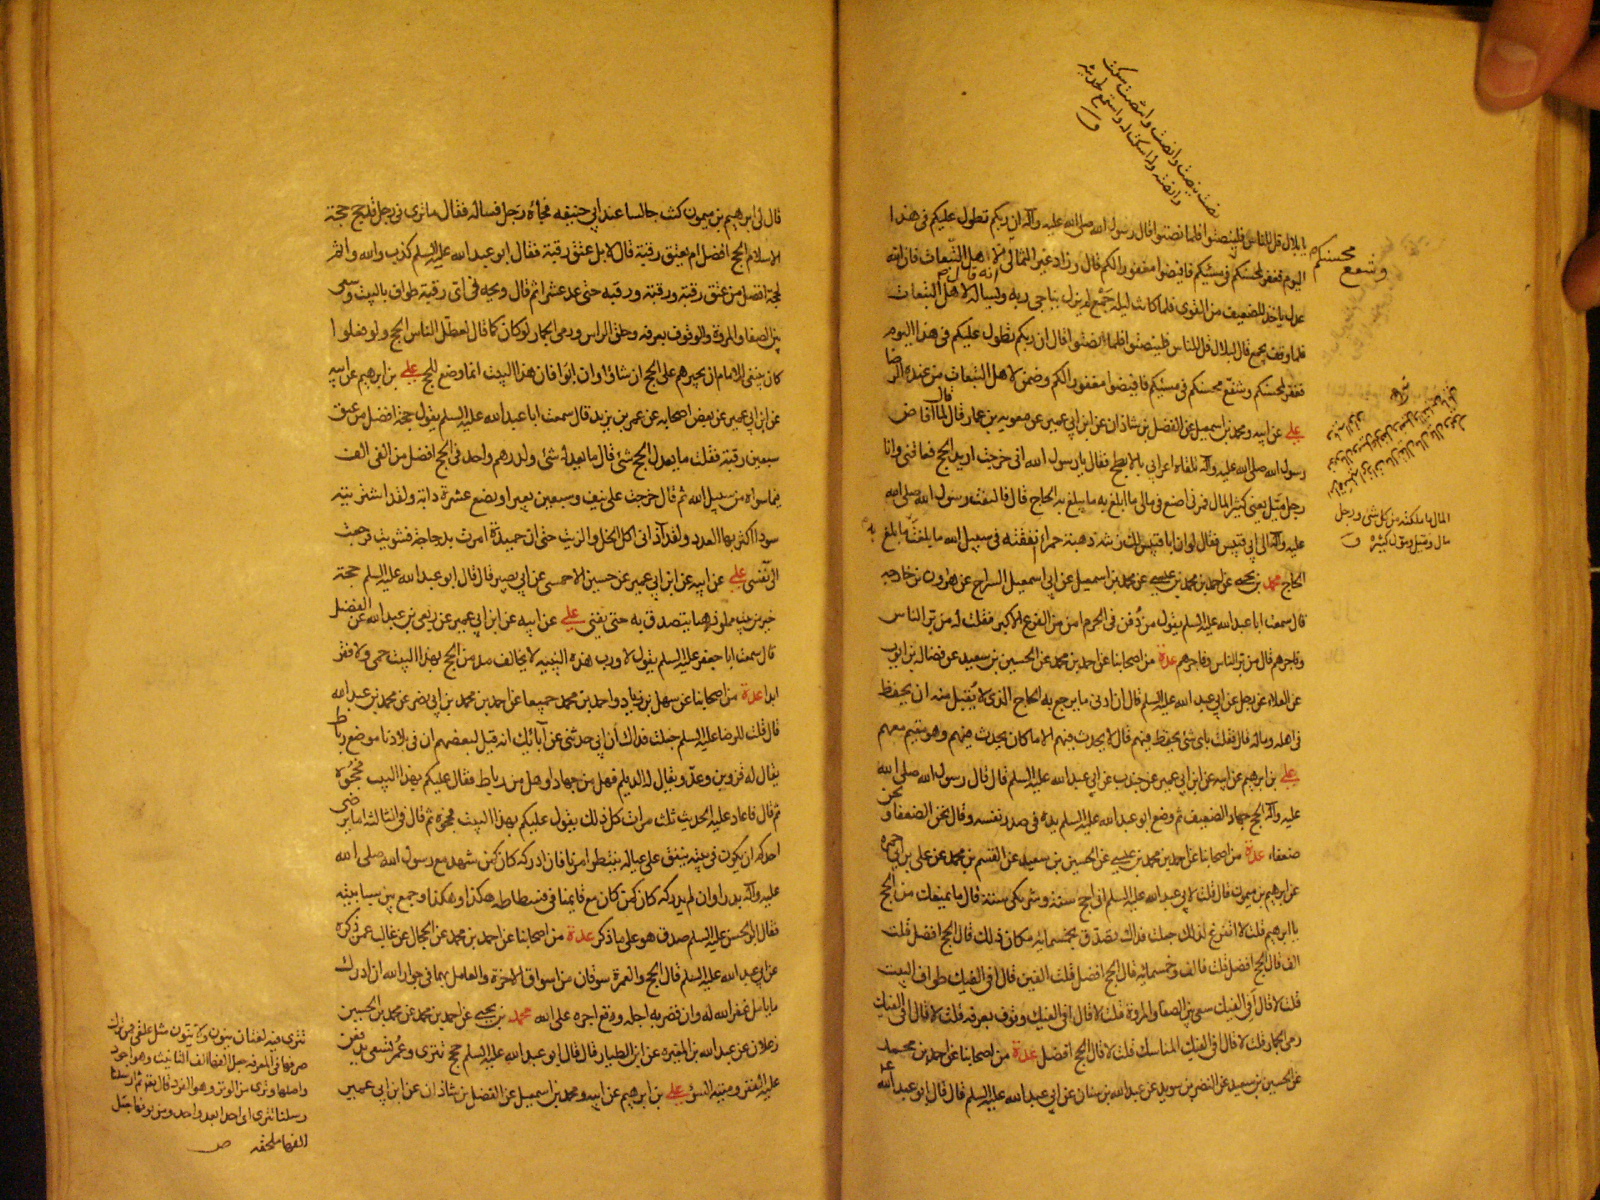 نصت ينصت وانصت وانتصت سكت
وانصته وله اسكت له واستمع لحديثه
ق
يا بلال قل للناس فلينصتوا فلما نصتوا قال رسول الله صلى الله عليه وآله ان ربكم تطول عليكم في هذا
اليوم فغفر لمحسنكم وشفع محسنكم في مسيئكم فافيضوا مغفورا لكم قال وزاد غير الثمالي انه قال الا اهل التبعات فان الله
عدل ياخذ للضعيف من القوى فلما كانت ليلة جمع لم يزل يناجي ربه ويساله لاهل التبعات
فلما وقف بجمع قال لبلال قل للناس فلينصتوا فلما نصتوا قال ان ربكم تطول عليكم في هذا اليوم
فغفر لمحسنكم وشفع محسنكم في مسيئكم فافيضوا مغفورا لكم وضمن لاهل التبعات من عنده الرضا
علي عن ابيه ومحمد بن اسمعيل عن الفضل بن شاذان عن ابن ابي عمير عن معوية بن عمار قال لما افاض
رسول الله صلى الله عليه وآله تلقاه اعرابي بالابطح فقال يا رسول الله اني خرجت اريد الحج فعاقني وانا
رجل ميل يعني كثير المال فمرني اصنع في مالي ما ابلغ به ما يبلغ به الحاج قال فالتفت رسول الله صلى الله
عليه وآله الى ابي قبيس فقال لو ان ابا قبيس لك زنته ذهبة حمراء نفقته في سبيل الله ما بلغت ما بلغ
الحاج محمد بن يحيى عن احمد بن محمد بن عيسى عن محمد بن اسمعيل عن ابي اسمعيل السراج عن هرون بن خارجه
قال سمعت ابا عبد الله عليه السلم يقول من دُفن في الحرم امن من الفزع الاكبر فقلت له من بر الناس
وفاجرهم قال من بر الناس وفاجرهم عدة من اصحابنا عن احمد بن محمد عن الحسين بن سعيد عن فضاله بن ايوب
عن العلاء عن رجل عن ابي عبد الله عليه السلم قال ان ادنى ما يرجع به الحاج الذي لا يُقبل منه ان يحفظ
في اهله وماله قال فقلت باي شئ يحفظ فيهم قال لا يحدث فيهم الا ما كان يحدث فيهم وهو مقيم معهم
علي بن ابرهيم عن ابيه عن ابن ابي عمير عن جندب عن ابي عبد الله عليه السلم قال قال رسول الله صلى الله
عليه وآله الحج جهاد الضعيف ثم وضع ابو عبد الله عليه السلم يده في صدر نفسه وقال نحن الضعفا ونحن
ضعفاء عدة من اصحابنا عن احمد بن محمد بن عيسى عن الحسين بن سعيد عن القسم بن محمد عن علي بن ابي حمزه
عن ابرهيم بن ميمون قال قلت لابي عبد الله عليه السلم اني احج سنة وشريكي سنة قال ما يمنعك من الحج
يا ابرهيم قلت لا اتفرغ لذلك جعلت فداك اتصدق بخمسمائه مكان ذلك قال الحج افضل قلت
الف قال الحج افضل قلت فالف وخمسمائه قال الحج افضل قلت الفين قال افي الفيك طواف البيت
قلت لا قال أفي الفيك سعى بين الصفا والمروة قلت لا قال افي الفيك وقوف بعرفه قلت لا قال افي الفيك
رمى الجمار قلت لا قال افي الفيك المناسك قلت لا قال الحج افضل عدة من اصحابنا عن احمد بن محمد
عن الحسين بن سعيد عن النضر بن سويد عن عبد الله بن سنان عن ابي عبد الله عليه السلم قال قال ابو عبد الله
وشفع محسنكم
المال ما ملكته من كل شئ ورجل
مال وميل ومول كثيره ق
قال لي ابرهيم بن ميمون كنت جالسا عند ابي حنيفه فجاءه رجل فساله فقال ما ترى في رجل قد حج حجة
الاسلام الحج افضل ام يعتق رقبة قال لا بل عتق رقبة فقال ابو عبد الله عليه السلم كذب والله واثم
لحجة افضل من عتق رقبة ورقبة ورقبه حتى عد عشرا ثم قال ويحه في اى رقبة طواف بالبيت وسعى
بين الصفا والمروة والوقوف بعرفه وحلق الراس ورمى الجمار لو كان كما قال لعطل الناس الحج ولو فعلوا
كان ينبغي للامام ان يجبرهم على الحج ان شاؤا وان ابوا فان هذا البيت انما وضع للحج علي بن ابرهيم عن ابيه
عن ابن ابي عمير عن بعض اصحابه عن عمر بن يزيد قال سمعت ابا عبد الله عليه السلم يقول حجة افضل من عتق
سبعين رقبة فقلت ما يعدل الحج شئ قال ما يعدله شئ ولدرهم واحد في الحج افضل من الفي الف
فيما سواه من سبيل الله ثم قال خرجت على نيف وسبعين بعيرا وبضع عشرة دابة ولقد اشتريت
سودا اكثر بها العدد ولقد آذاني اكل الخل والزيت حتى ان حميدة امرت بدجاجة فشويت فرجعت
الى نفسى علي عن ابيه عن ابن ابي عمير عن حسين الاحمسي عن ابي بصير قال قال ابو عبد الله عليه السلم حجة
خير من بيت مملو ذهبا يتصدق به حتى يفنى علي عن ابيه عن ابن ابي عمير عن ربعي بن عبد الله عن الفضيل
قال سمعت ابا جعفر عليه السلم يقول لا ورب هذه البنيه لا يحالف مدمن الحج بهذا البيت حمى ولا فقر
ابدا عدة من اصحابنا عن سهل بن زياد واحمد بن محمد جميعا عن احمد بن محمد بن ابي نصر عن محمد بن عبد الله
قال قلت للرضا عليه السلم جعلت فداك أن ابي حدثني عن آبائك انه قيل لبعضهم ان في بلادنا موضع رباط
يقال له قزوين وعدوا يقال له الديلم فهل من جهاد او هل من رباط فقال عليكم بهذا البيت فحجّوه
ثم قال فاعاد عليه الحديث ثلث مرات كل ذلك يقول عليكم بهذا البيت فحجوه ثم قال في الثالثه اما يرضى
احدكم ان يكون في بيته ينفق على عياله ينتظر امرنا فان ادركه كان كمن شهد مع رسول الله صلى الله
عليه وآله بدرا وان لم يدركه كان كمن كان مع قايمنا في فسطاطه هكذا وهكذا وجمع بين سبابتيه
فقال ابو الحسن عليه السلم صدق هو على ما ذكر عدة من اصحابنا عن احمد بن محمد عن الحجال عن غالب عمن ذكره
عن ابي عبد الله عليه السلم قال الحج والعمرة سوقان من اسواق الاخرة والعامل بهما في جوار الله ان ادرك
ما يامل غفر الله له وان قصر به اجله وقع اجره على الله محمد بن يحيى عن احمد بن محمد عن محمد بن الحسين
زعلان عن عبد الله بن المغيره عن ابن الطيار قال قال ابو عبد الله عليه السلم حجج تترى وعُمر تسعى يدفعن
عيلة الفقر وميتة السوء علي بن ابرهيم عن ابيه ومحمد بن اسمعيل عن الفضل بن شاذان عن ابن ابي عمير
تترى فيه لغتان ينون ولا ينون مثل علقى فمن ترك
صرفها في المعرفه جعل الفها الف التانيث وهو اجود
واصلها وترى من الوتر وهو الفرد قال تعالى ثم ارسلنا
رسلنا تترى اى واحدا بعد واحد ومن نونها جعل
الفها ملحقه ص